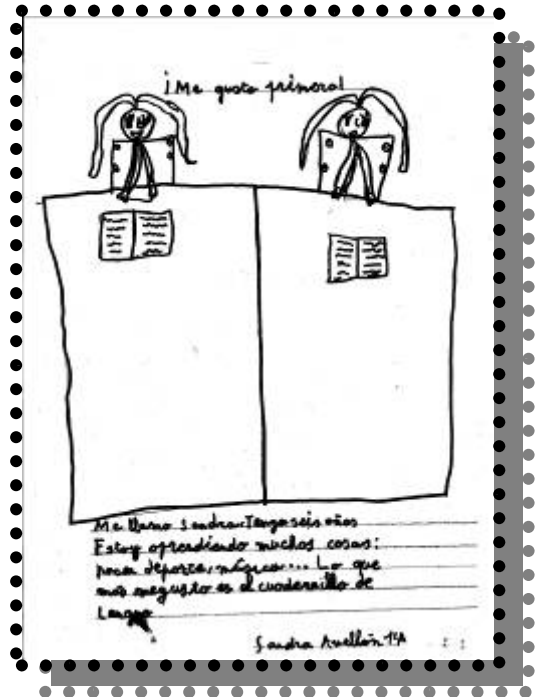 ¡Me gusta primaria!
Me llamo Sandra. Tengo seis años
Estoy aprendiendo muchas cosas:
hacer deporte, música... Lo que
más me gusta es el cuadernillo de
Lengua
Sandra Avellán 1ºA